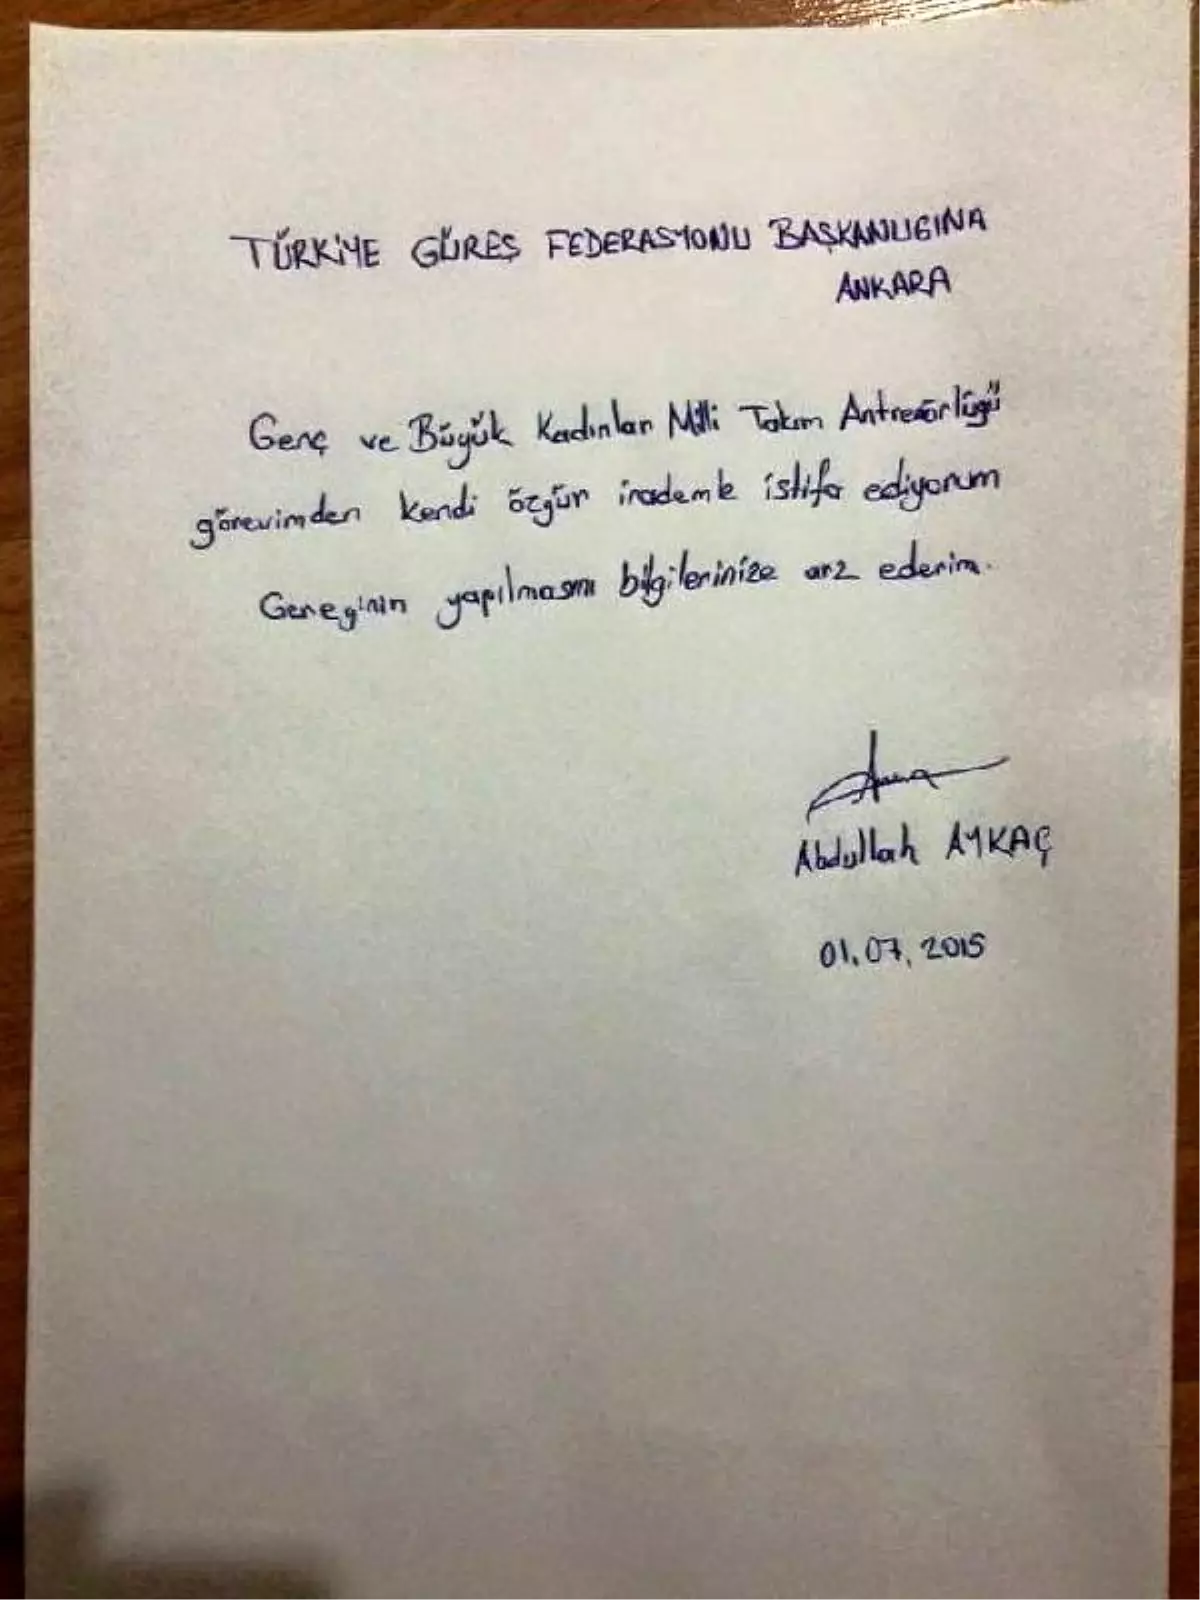 TÜRKİYE GÜREŞ FEDERASYONU BAŞKANLIGINA
ANKARA
Genç ve Büyük Kadınlar Milli Takım Antrenörlügü
görevimden kendi özgür irademle istifa ediyorum
Gereginin yapılmasını bilgilerinize arz ederim.
Abdullah AYKAÇ
01.07.2015